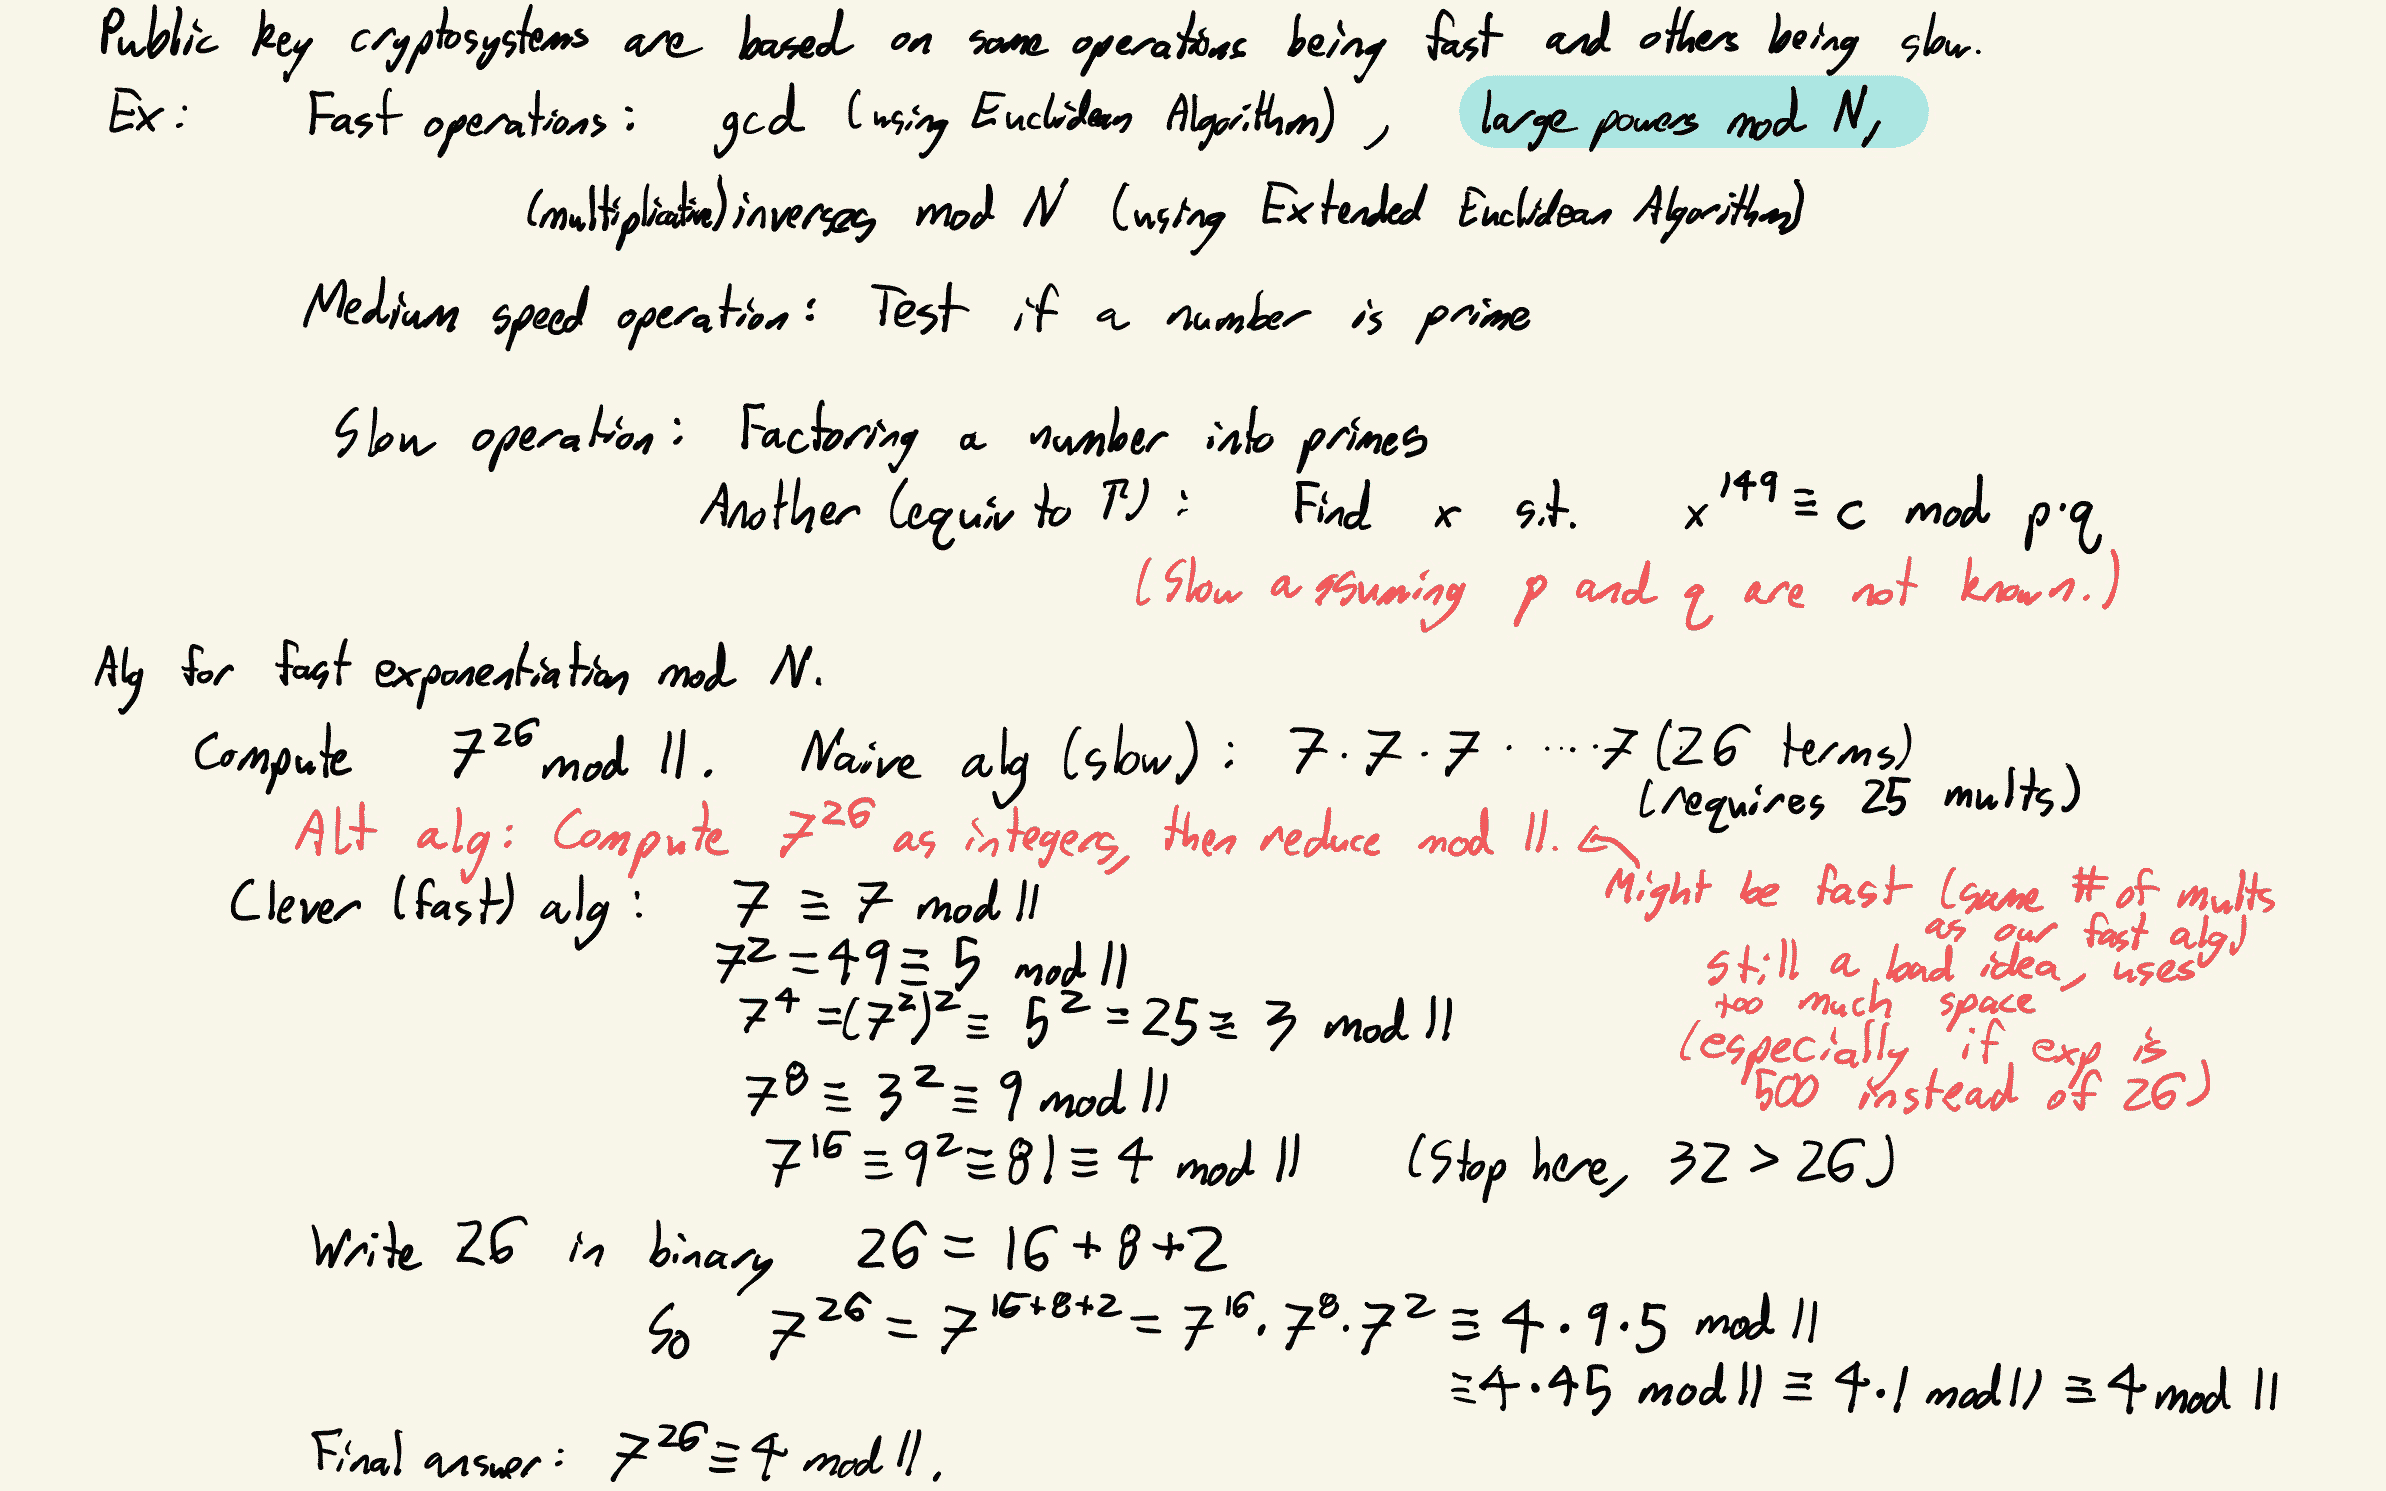 Public key cryptosystems are based on some operations being fast and others being slow.
Ex: Fast operations: gcd (using Euclidean Algorithm), large powers mod N,
(multiplicative) inverses mod N (using Extended Euclidean Algorithm)
Medium speed operation: Test if a number is prime
Slow operation: Factoring a number into primes
Another (equiv to ↑): Find x s.t. x^149 ≡ c mod p·q
(Slow assuming p and q are not known.)
Alg for fast exponentiation mod N.
Compute 7^26 mod 11. Naive alg (slow): 7·7·7· ···7 (26 terms)
(requires 25 mults)
Alt alg: Compute 7^26 as integers, then reduce mod 11. ←
Might be fast (same # of mults
as our fast alg)
still a bad idea, uses
too much space
(especially if exp is
500 instead of 26)
Clever (fast) alg: 7 ≡ 7 mod 11
7^2 = 49 ≡ 5 mod 11
7^4 = (7^2)^2 ≡ 5^2 = 25 ≡ 3 mod 11
7^8 ≡ 3^2 ≡ 9 mod 11
7^16 ≡ 9^2 ≡ 81 ≡ 4 mod 11 (Stop here, 32 > 26)
Write 26 in binary 26 = 16 + 8 + 2
So 7^26 = 7^16+8+2 = 7^16 · 7^8 · 7^2 ≡ 4·9·5 mod 11
≡ 4·45 mod 11 ≡ 4·1 mod 11 ≡ 4 mod 11
Final answer: 7^26 ≡ 4 mod 11.